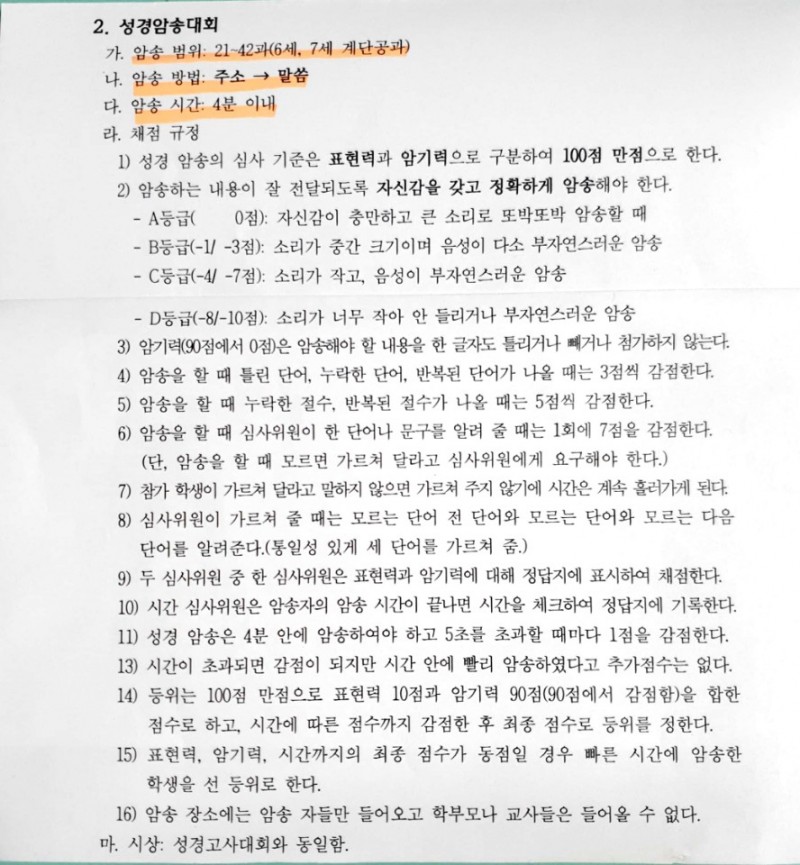 2. 성경암송대회
가. 암송 범위: 21~42과(6세, 7세 계단공과)
나. 암송 방법: 주소 → 말씀
다. 암송 시간: 4분 이내
라. 채점 규정
1) 성경 암송의 심사 기준은 표현력과 암기력으로 구분하여 100점 만점으로 한다.
2) 암송하는 내용이 잘 전달되도록 자신감을 갖고 정확하게 암송해야 한다.
- A등급( 0점): 자신감이 충만하고 큰 소리로 또박또박 암송할 때
- B등급(-1/ -3점): 소리가 중간 크기이며 음성이 다소 부자연스러운 암송
- C등급(-4/ -7점): 소리가 작고, 음성이 부자연스러운 암송
- D등급(-8/-10점): 소리가 너무 작아 안 들리거나 부자연스러운 암송
3) 암기력(90점에서 0점)은 암송해야 할 내용을 한 글자도 틀리거나 빼거나 첨가하지 않는다.
4) 암송을 할 때 틀린 단어, 누락한 단어, 반복된 단어가 나올 때는 3점씩 감점한다.
5) 암송을 할 때 누락한 절수, 반복된 절수가 나올 때는 5점씩 감점한다.
6) 암송을 할 때 심사위원이 한 단어나 문구를 알려 줄 때는 1회에 7점을 감점한다.
(단, 암송을 할 때 모르면 가르쳐 달라고 심사위원에게 요구해야 한다.)
7) 참가 학생이 가르쳐 달라고 말하지 않으면 가르쳐 주지 않기에 시간은 계속 흘러가게 된다.
8) 심사위원이 가르쳐 줄 때는 모르는 단어 전 단어와 모르는 단어와 모르는 다음
단어를 알려준다.(통일성 있게 세 단어를 가르쳐 줌.)
9) 두 심사위원 중 한 심사위원은 표현력과 암기력에 대해 정답지에 표시하여 채점한다.
10) 시간 심사위원은 암송자의 암송 시간이 끝나면 시간을 체크하여 정답지에 기록한다.
11) 성경 암송은 4분 안에 암송하여야 하고 5초를 초과할 때마다 1점을 감점한다.
13) 시간이 초과되면 감점이 되지만 시간 안에 빨리 암송하였다고 추가점수는 없다.
14) 등위는 100점 만점으로 표현력 10점과 암기력 90점(90점에서 감점함)을 합한
점수로 하고, 시간에 따른 점수까지 감점한 후 최종 점수로 등위를 정한다.
15) 표현력, 암기력, 시간까지의 최종 점수가 동점일 경우 빠른 시간에 암송한
학생을 선 등위로 한다.
16) 암송 장소에는 암송 자들만 들어오고 학부모나 교사들은 들어올 수 없다.
마. 시상: 성경고사대회와 동일함.